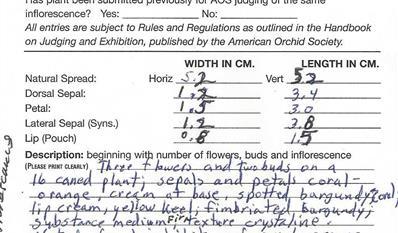 Has plant been submitted previously for AOS judging of the same
inflorescence? Yes: No:
All entries are subject to Rules and Regulations as outlined in the Handbook
on Judging and Exhibition, published by the American Orchid Society.
WIDTH IN CM. LENGTH IN CM.
Natural Spread: Horiz 5.2 Vert 5.2
Dorsal Sepal: 1.2 3.4
Petal: 1.5 3.0
Lateral Sepal (Syns.) 1.2 3.8
Lip (Pouch) 0.8 1.5
Description: beginning with number of flowers, buds and inflorescence
(PLEASE PRINT CLEARLY) Three flowers and two buds on a
16 caned plant; sepals and petals coral-
orange, cream at base, spotted burgundy; coral
lip cream, yellow keel, fimbriated burgundy;
substance medium firm texture crystaline.